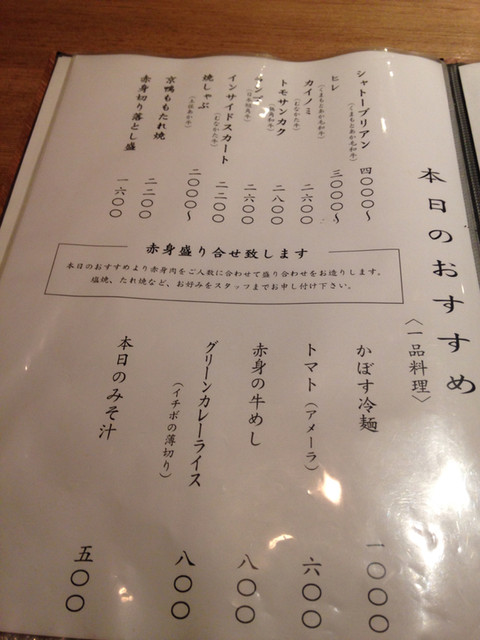 本日のおすすめ
シャトーブリアン
(くまもとあか毛和牛)
四〇〇〇～
ヒレ
(くまもとあか毛和牛)
三〇〇〇～
カイノミ
(むなかた牛)
二六〇〇
トモサンカク
二八〇〇
二六〇〇
インサイドスカート
(むなかた牛)
二二〇〇
焼しゃぶ
二〇〇〇～
京鴨ももたれ焼
二二〇〇
赤身切り落とし盛
一六〇〇
赤身盛り合せ致します
本日のおすすめより赤身肉をご人数に合わせて盛り合わせをお造りします。
塩焼、たれ焼など、お好みをスタッフまでお申し付け下さい。
〈一品料理〉
かぼす冷麺
一〇〇〇
トマト(アメーラ)
六〇〇
赤身の牛めし
八〇〇
グリーンカレーライス
(イチボの薄切り)
八〇〇
本日のみそ汁
五〇〇